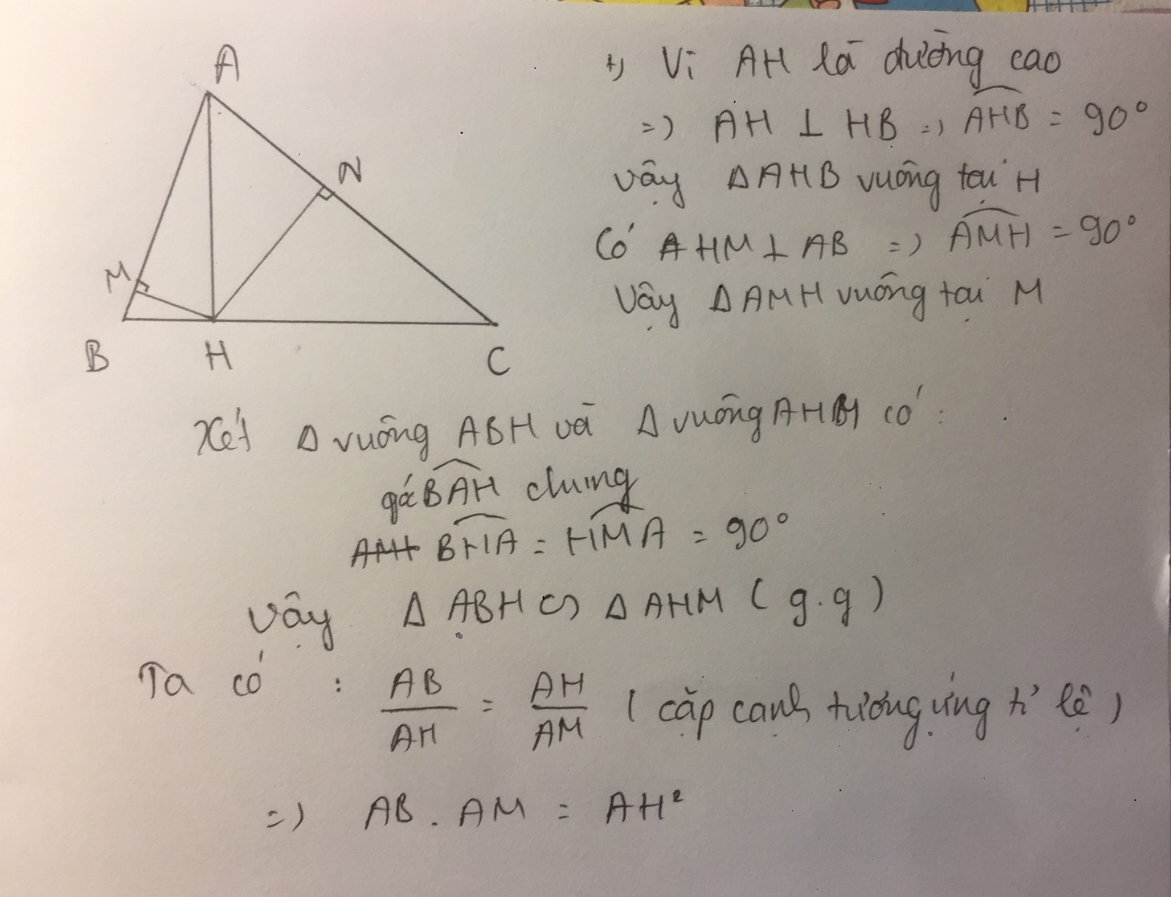 A
N
M
B
H
C
+) Vì AH là đường cao
=) AH ⊥ HB =) AHB = 90°
Vậy ΔAHB vuông tại H
Có HM ⊥ AB =) AMH = 90°
Vậy ΔAMH vuông tại M
Xét Δ vuông ABH và Δ vuông AHM có:
góc BAH chung
BHA = HMA = 90°
Vậy Δ ABH ∽ Δ AHM ( g.g )
Ta có : AB/AH = AH/AM ( cặp cạnh tương ứng tỉ lệ )
=) AB . AM = AH²